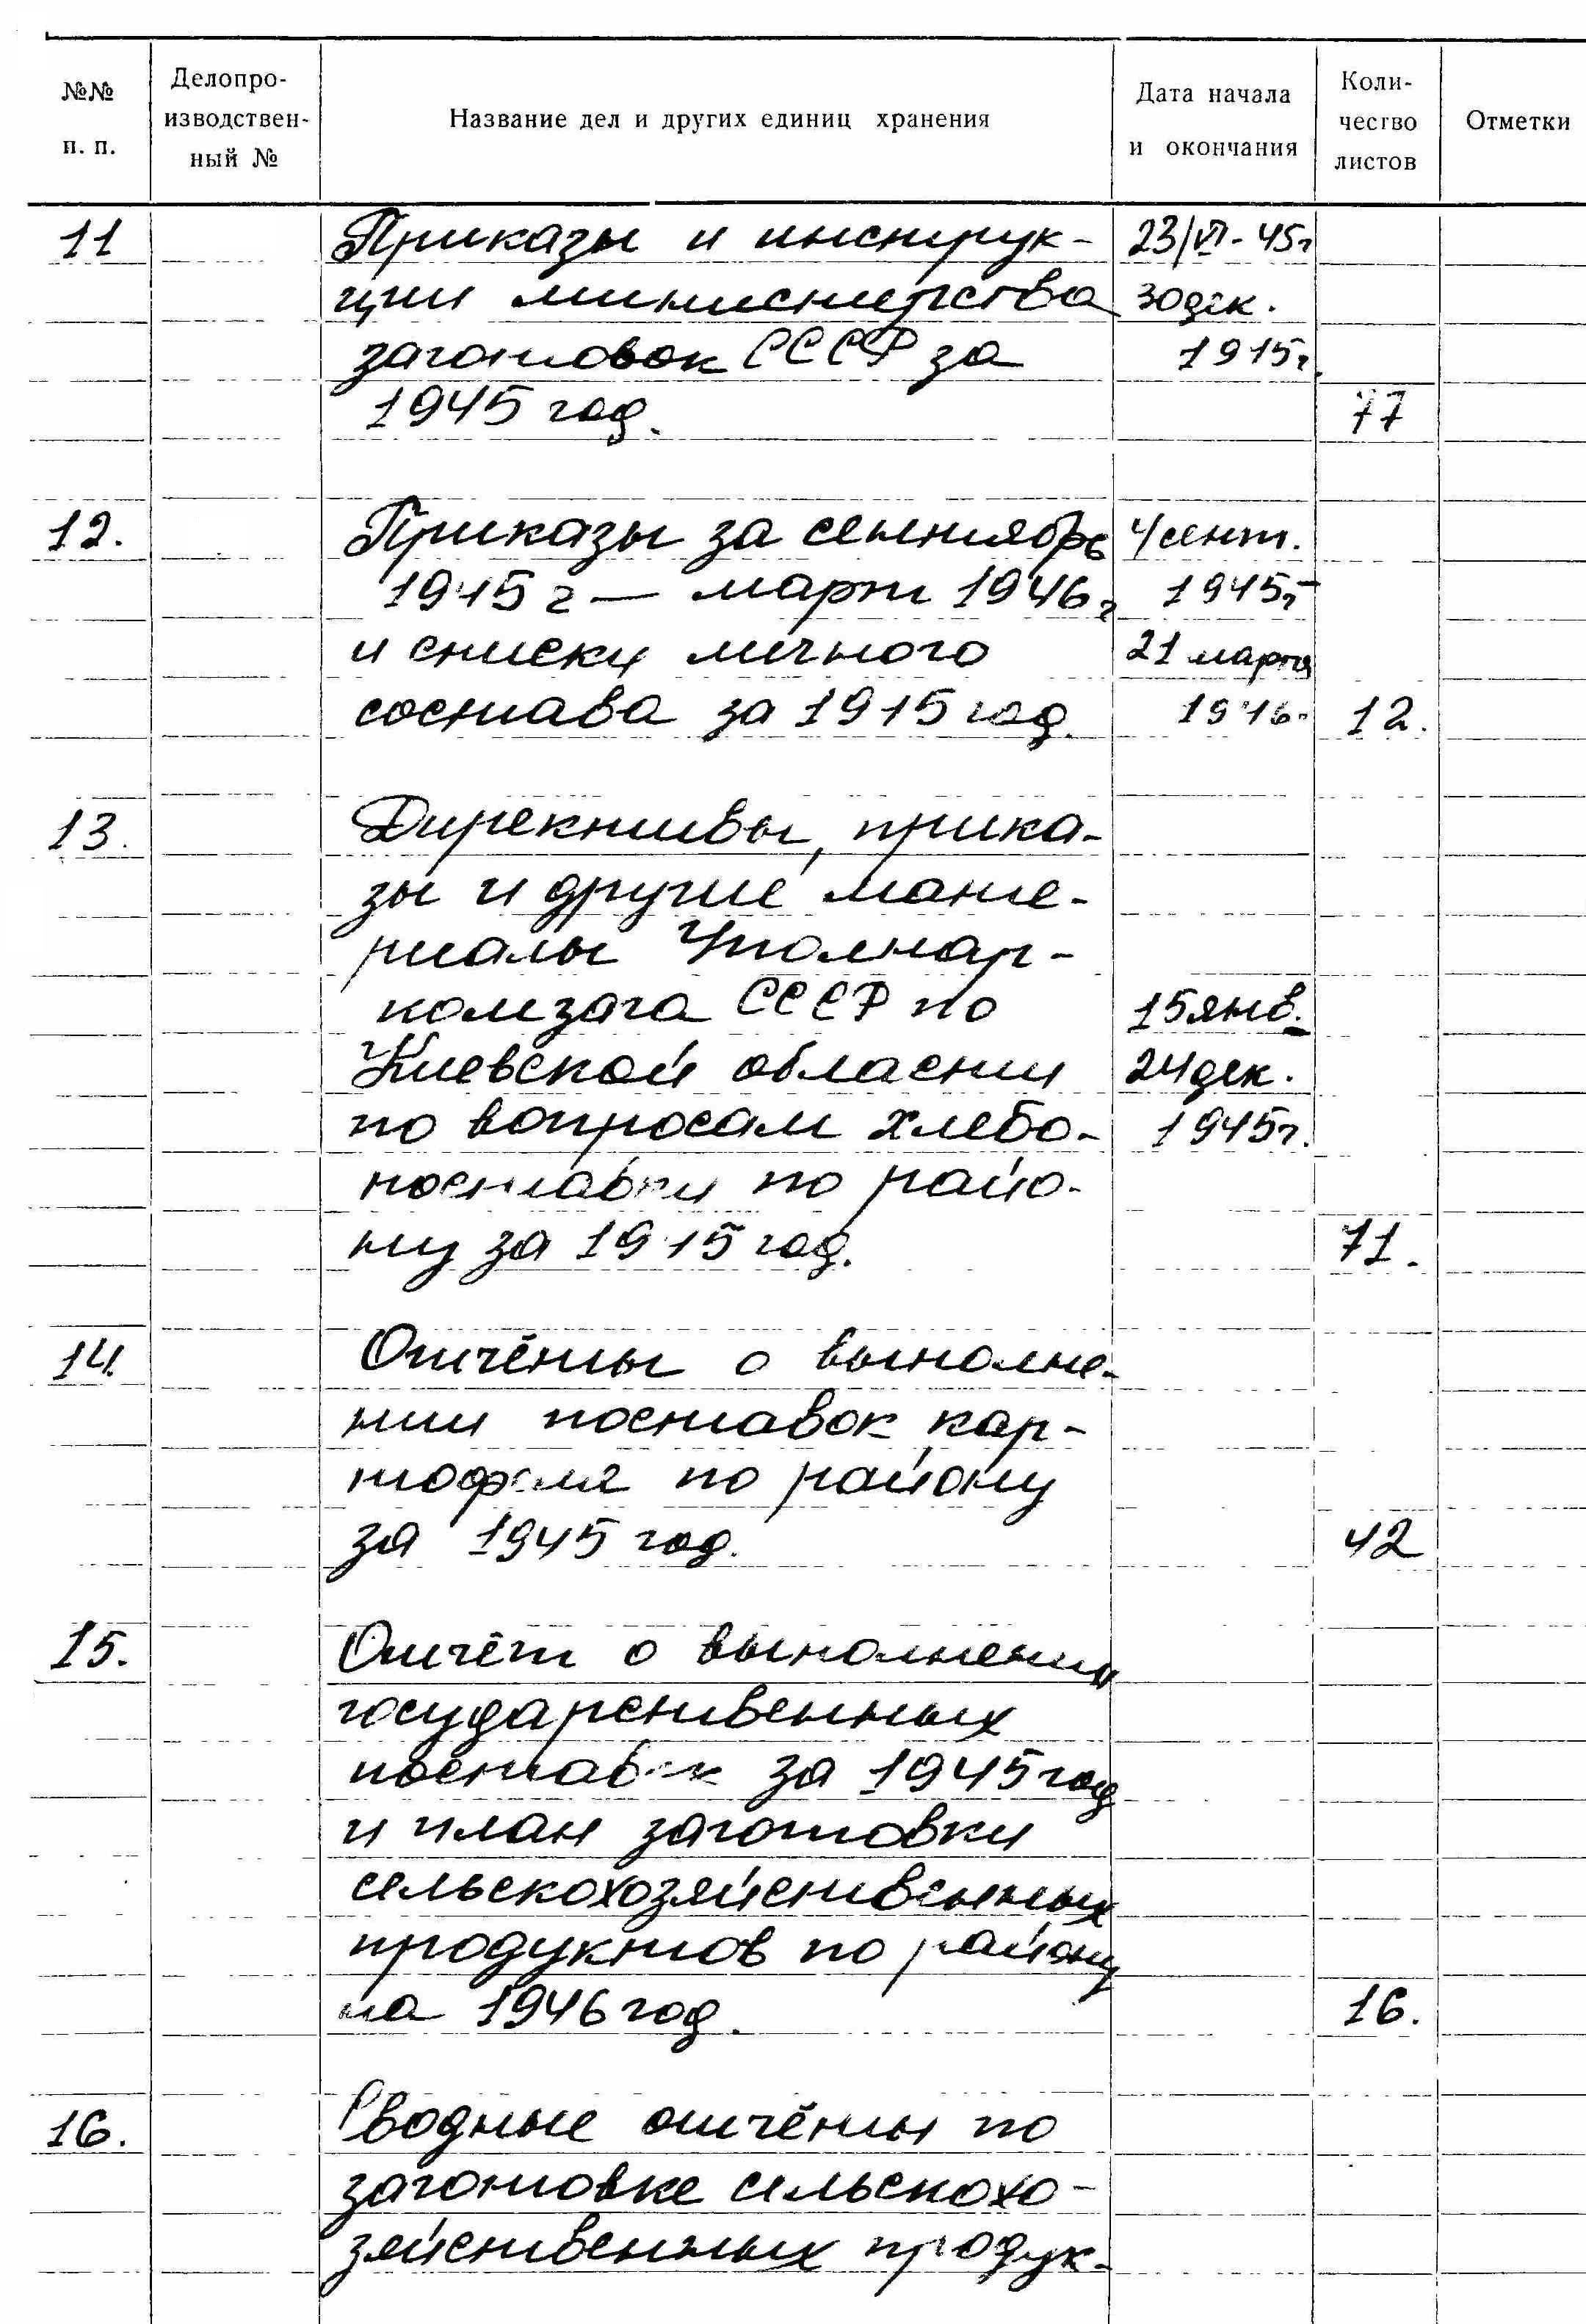 №№ п. п.
Делопро-
изводствен-
ный №
Название дел и других единиц хранения
Дата начала
и окончания
Коли-
чество
листов
Отметки
11 Приказы и инструк- 23/VI-45г
ции министерства 30 дек.
заготовок СССР за 1945г.
1945 год. 77
12. Приказы за сентябрь 4 сент.
1945 г — март 1946 г 1945г-
и списки личного 21 марта
состава за 1945 год. 1946г 12.
13. Директивы, прика-
зы и другие мате-
риалы Уполнар-
комзага СССР по 15 янв.-
Киевской области 24 дек.
по вопросам хлебо- 1945г.
поставки по райо-
ну за 1945 год. 71.
14. Отчёты о выполне-
нии поставок кар-
тофеля по району
за 1945 год. 42
15. Отчёт о выполнении
государственных
поставок за 1945 год
и план заготовки
сельскохозяйственных
продуктов по району
на 1946 год. 16.
16. Сводные отчёты по
заготовке сельскохо-
зяйственных продук-